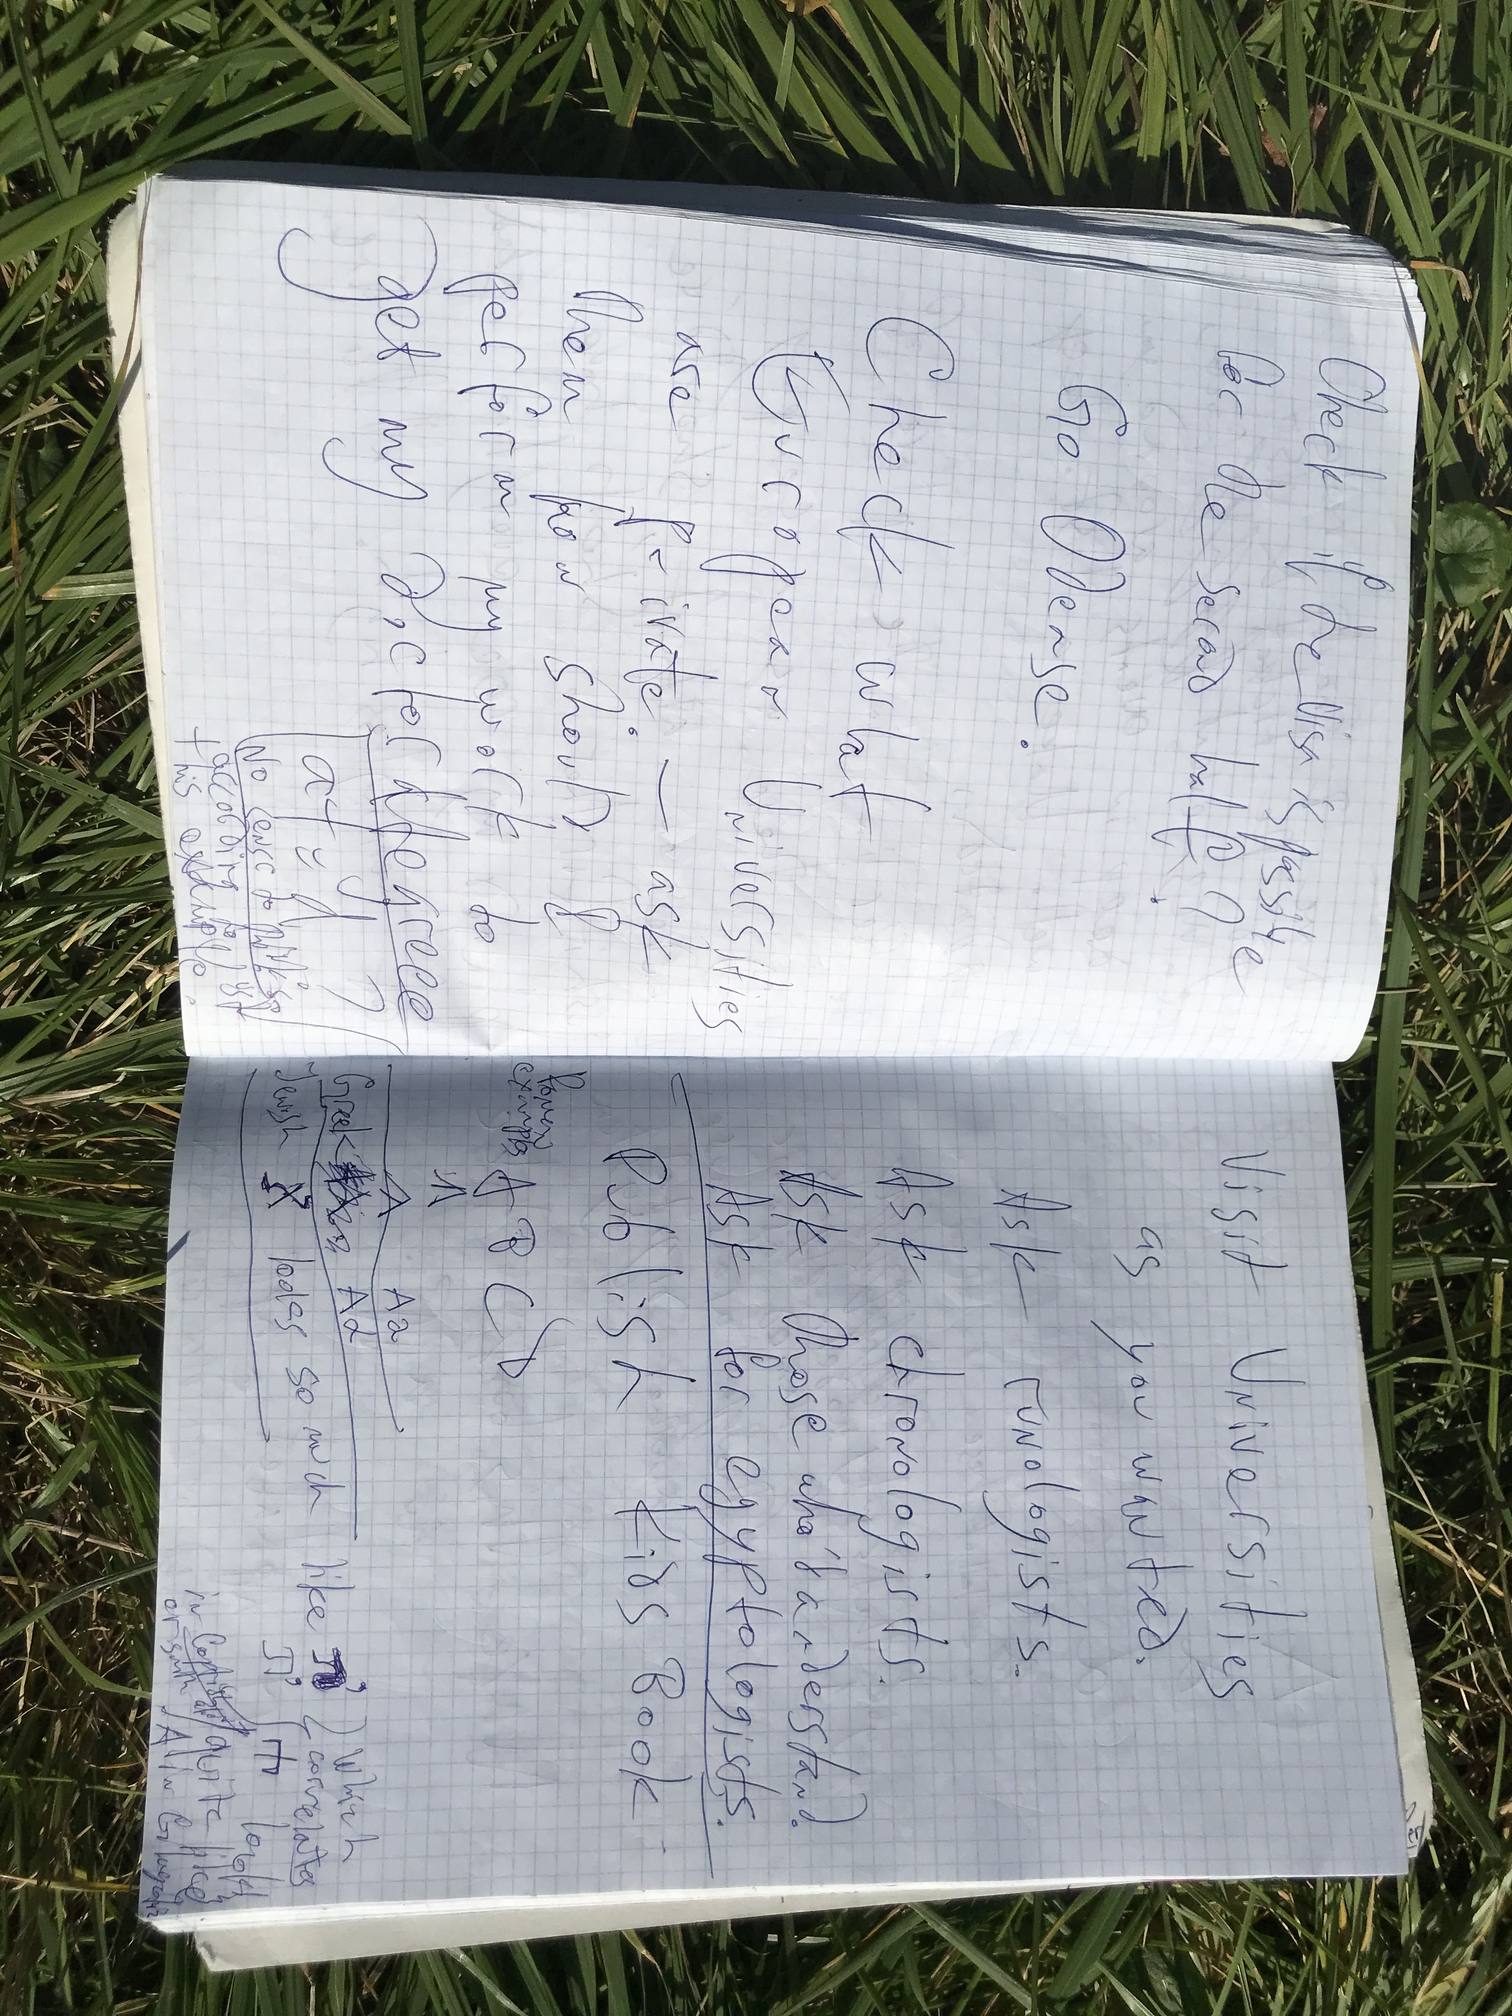 Check if the Visa is possible
for the second half?
Go Odense.
Check what
European Universities
are private. — ask
them how should
perform my work to
get my Doctor degree
at yf?
No sence to
according to
this example.
Visit Universities
as you wanted.
Ask runologists.
Ask chronologists.
Ask those who understand.
Ask for egyptologists.
Publish Kids Book
A B C
A Aa
Greek Aa
Jewish looks so much like
Which
correlates
look
quite
A in